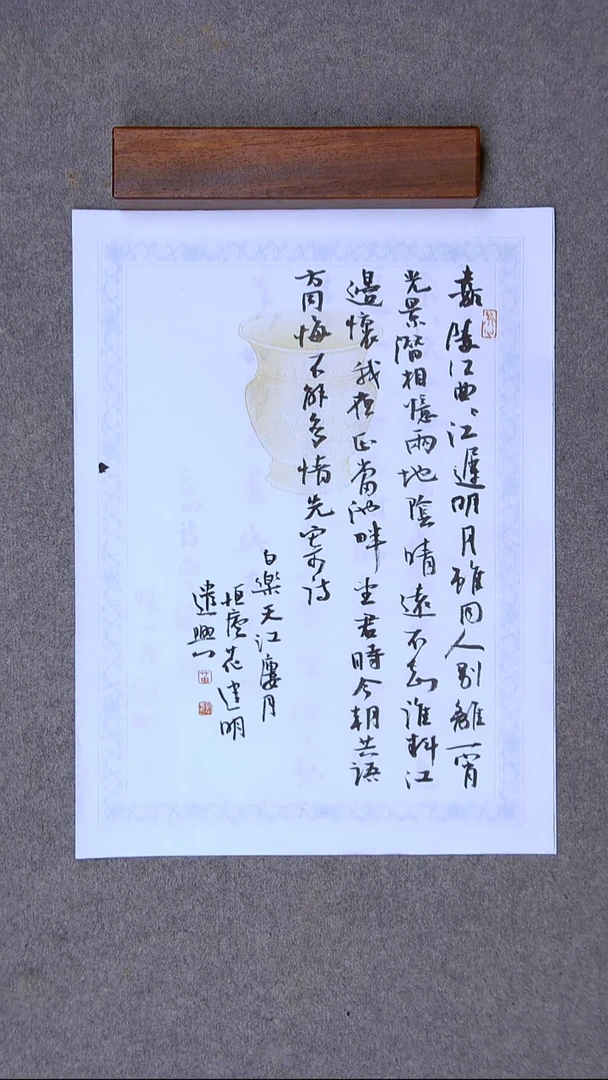 嘉陵江曲々江遲明月雖同人別離一宵
光景潛相憶兩地陰晴遠不知誰料江
邊懷我夜正當池畔望君時今朝共語
方同悔不解多情先寄詩
白樂天江廔月
明
遣興